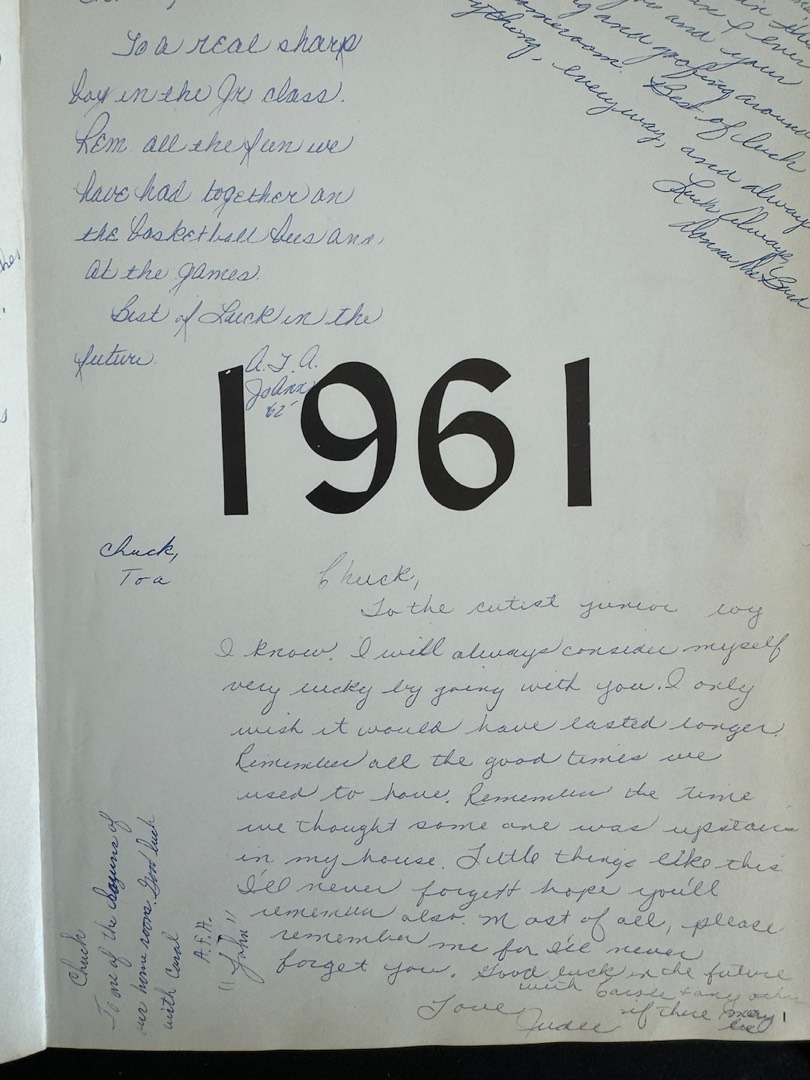 To a real sharp
boy in the Jr class.
Rem all the fun we
have had together on
the basketball buses and
at the games.
Best of Luck in the
future.
A.F.A.
JoAnn
'62'
in the
I ever
you and your
ing and goofing around
homeroom. Best of luck
ything, everyway, and always
Luck Always
Donna
1961
Chuck,
To a
Chuck,
To the cutist junior boy
I know. I will always consider myself
very lucky by going with you. I only
wish it would have lasted longer.
Remember all the good times we
used to have. Remember the time
we thought some one was upstairs
in my house. Little things like this
I'll never forgett hope you'll
remember also. Most of all, please
remember me for I'll never
forget you. Good luck in the future
with Carole + any other
if there may be
Love,
Judee
Chuck
To one of the of
our home room. Good luck
with Carol
A.F.A.
"John"